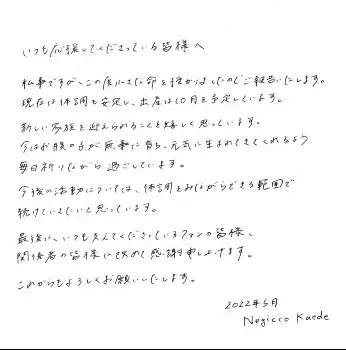 いつも応援してくださっている皆様へ
私事ですが、この度小さな命を授かりましたのでご報告いたします。
現在は体調も安定し、出産は10月を予定しています。
新しい家族を迎えられることを嬉しく思っています。
今はお腹の子が無事に育ち、元気に生まれてきてくれるよう
毎日祈りながら過ごしています。
今後の活動については、体調をみながらできる範囲で
続けていきたいと思っています。
最後に、いつも支えてくださっているファンの皆様、
関係者の皆様に改めて感謝申し上げます。
これからもよろしくお願いいたします。
2022年5月
Negicco Kaede